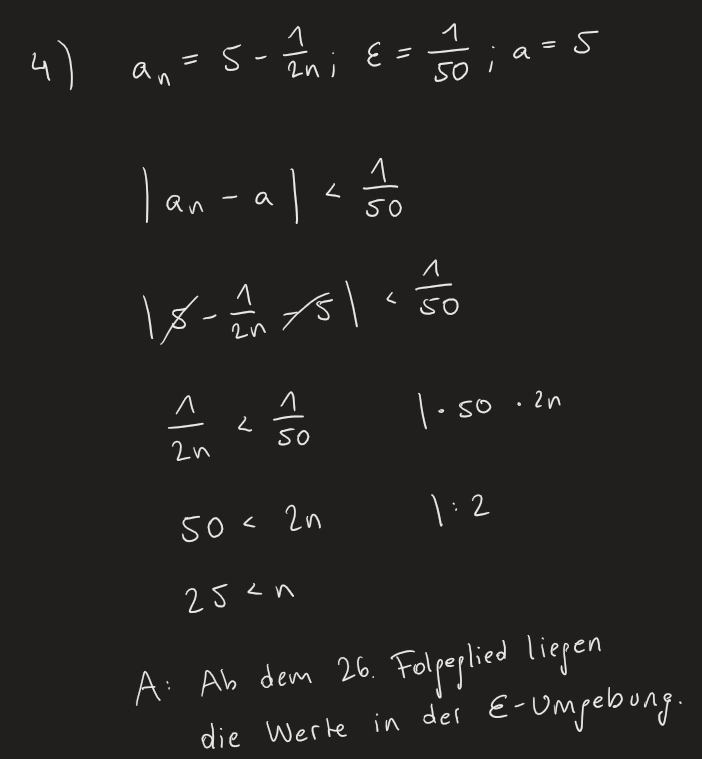 4) aₙ = 5 - 1/2n ; ε = 1/50 ; a = 5
|aₙ - a| < 1/50
|5 - 1/2n - 5| < 1/50
1/2n < 1/50 |· 50 · 2n
50 < 2n |: 2
25 < n
A: Ab dem 26. Folgeglied liegen
die Werte in der ε-Umgebung.